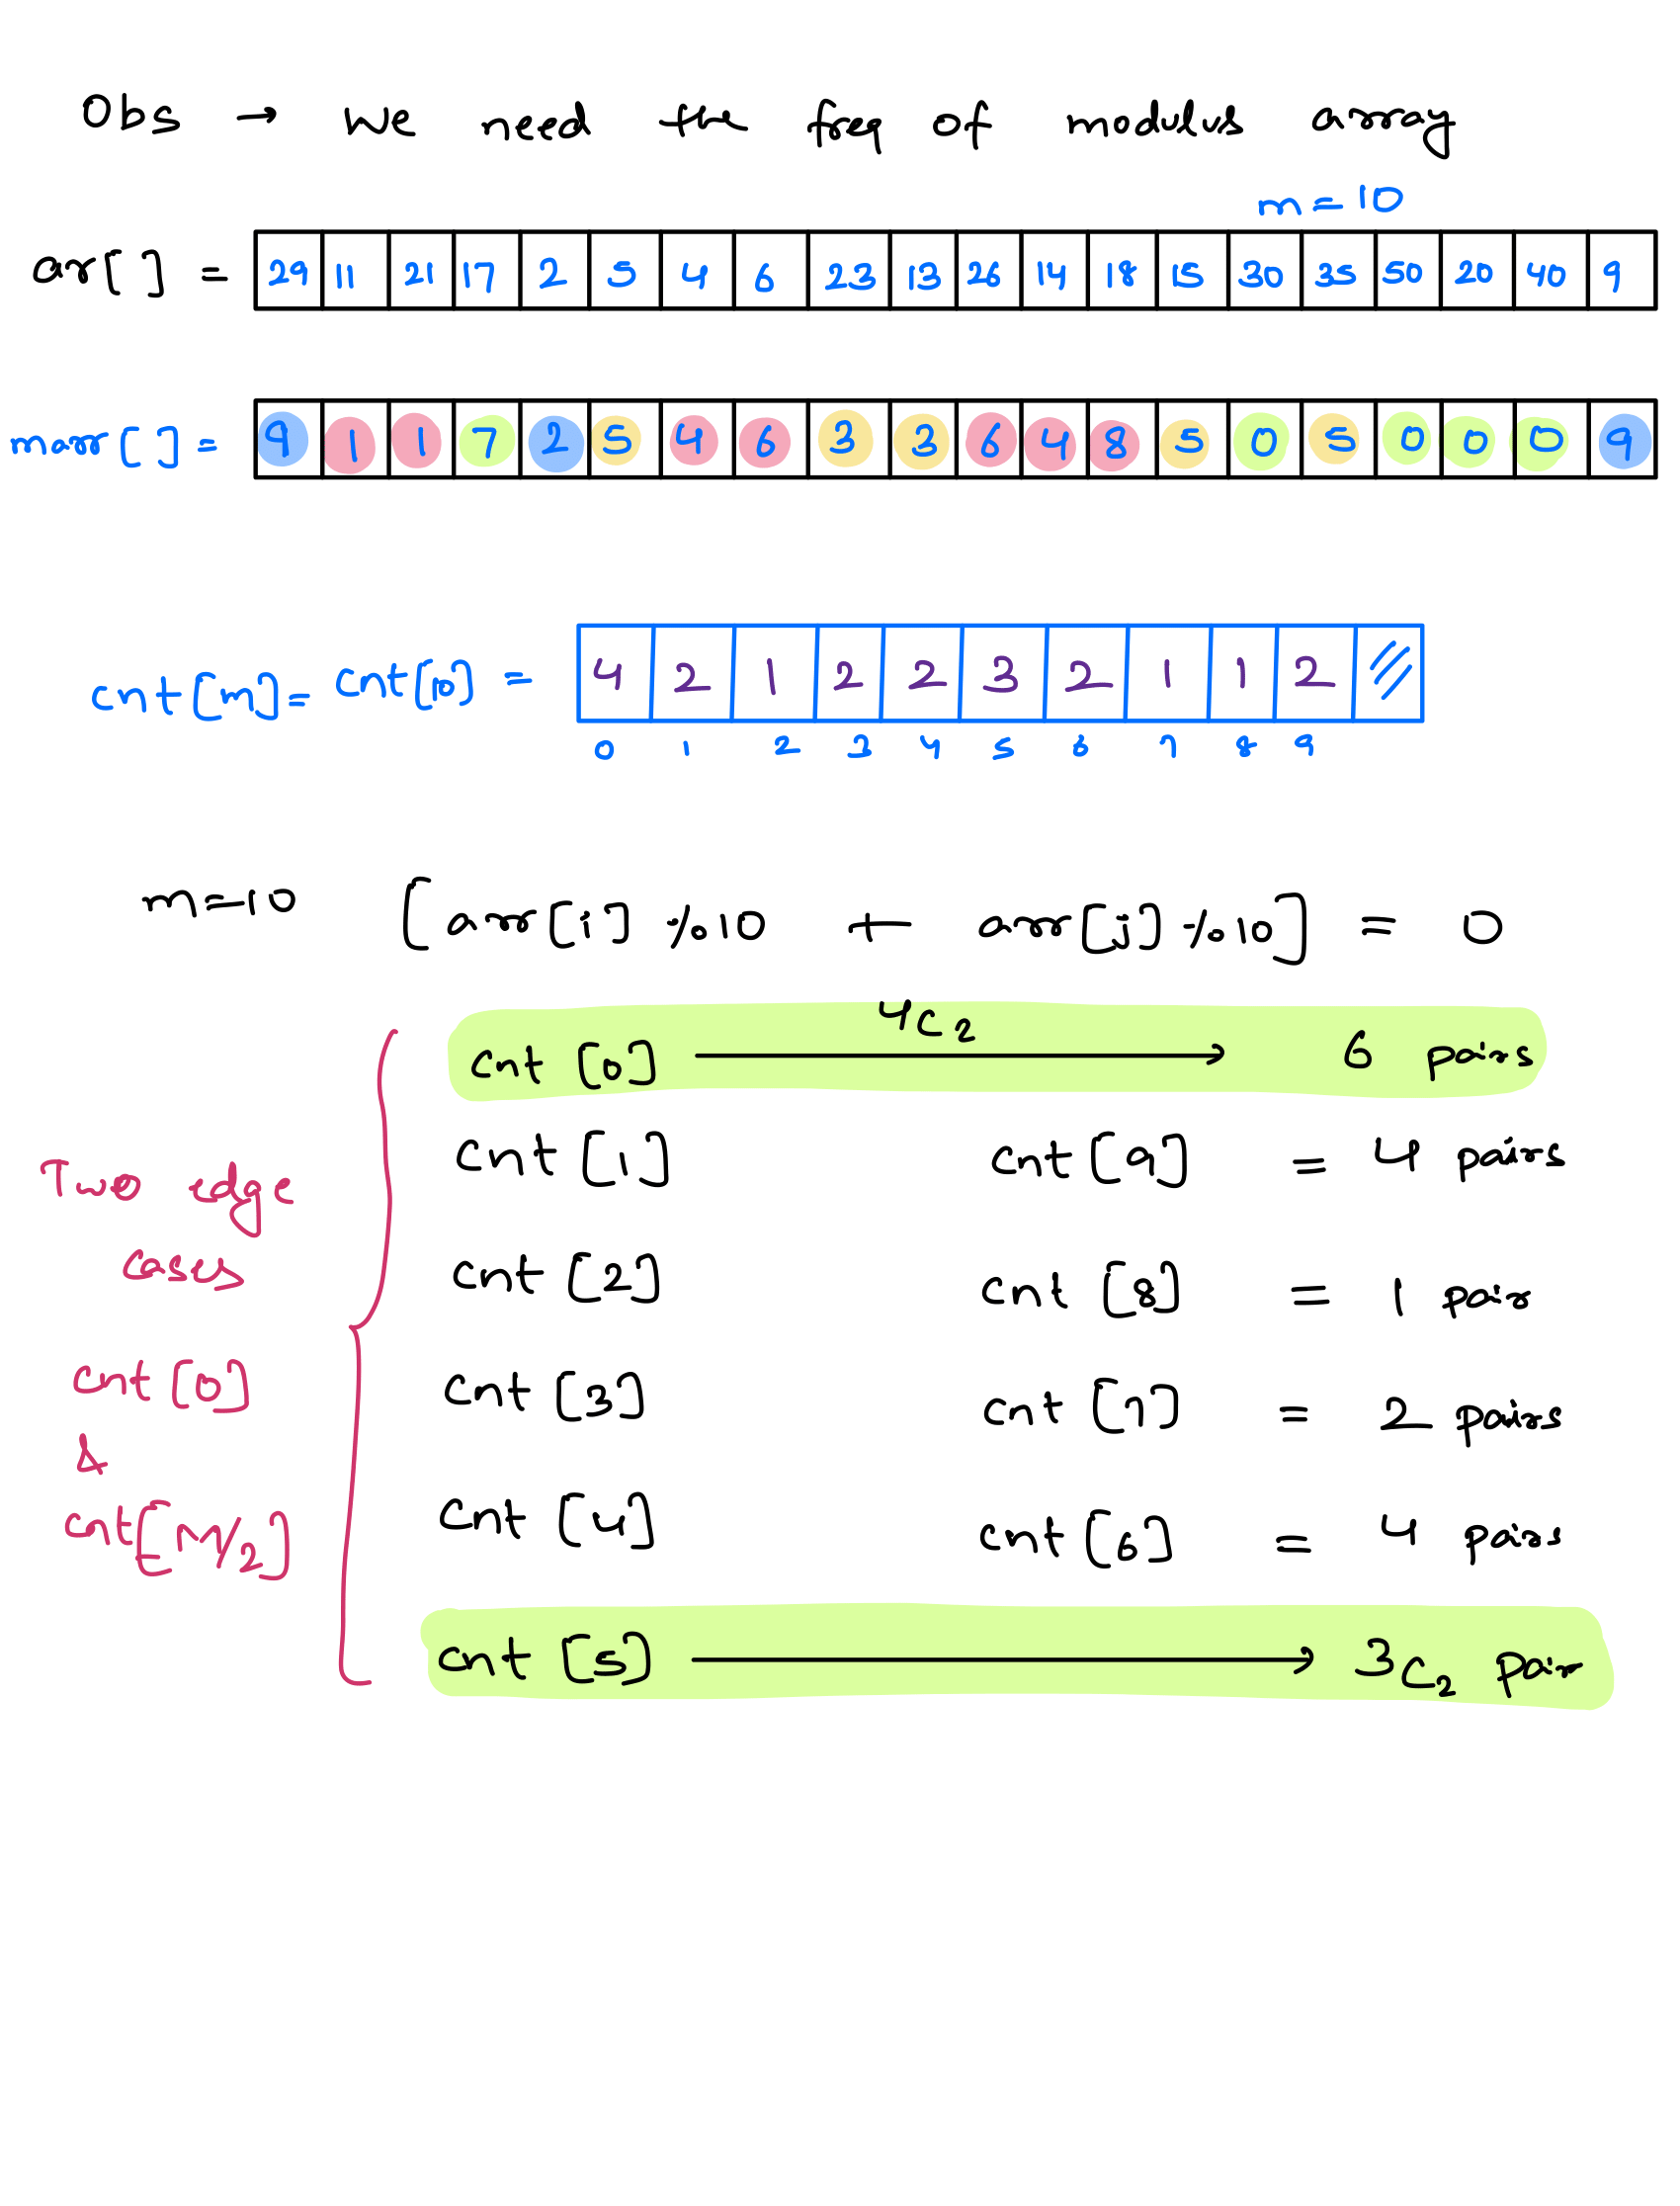 Obs → We need the freq of modulus array
m = 10
ar[ ] = 29 11 21 17 2 5 4 6 23 13 26 14 18 15 30 35 50 20 40 9
marr[ ] = 9 1 1 7 2 5 4 6 3 3 6 4 8 5 0 5 0 0 0 9
cnt[m] = cnt[10] = 4 2 1 2 2 3 2 1 1 2
0 1 2 3 4 5 6 7 8 9
m=10 [arr[i] %10 + arr[j] %10] = 0
cnt [0] 4C2 → 6 pairs
cnt [1] cnt [9] = 4 pairs
Two edge
cases
cnt [2] cnt [8] = 1 pair
cnt [0]
cnt [3] cnt [7] = 2 pairs
&
cnt [M/2]
cnt [4] cnt [6] = 4 pairs
cnt [5] → 3C2 pair